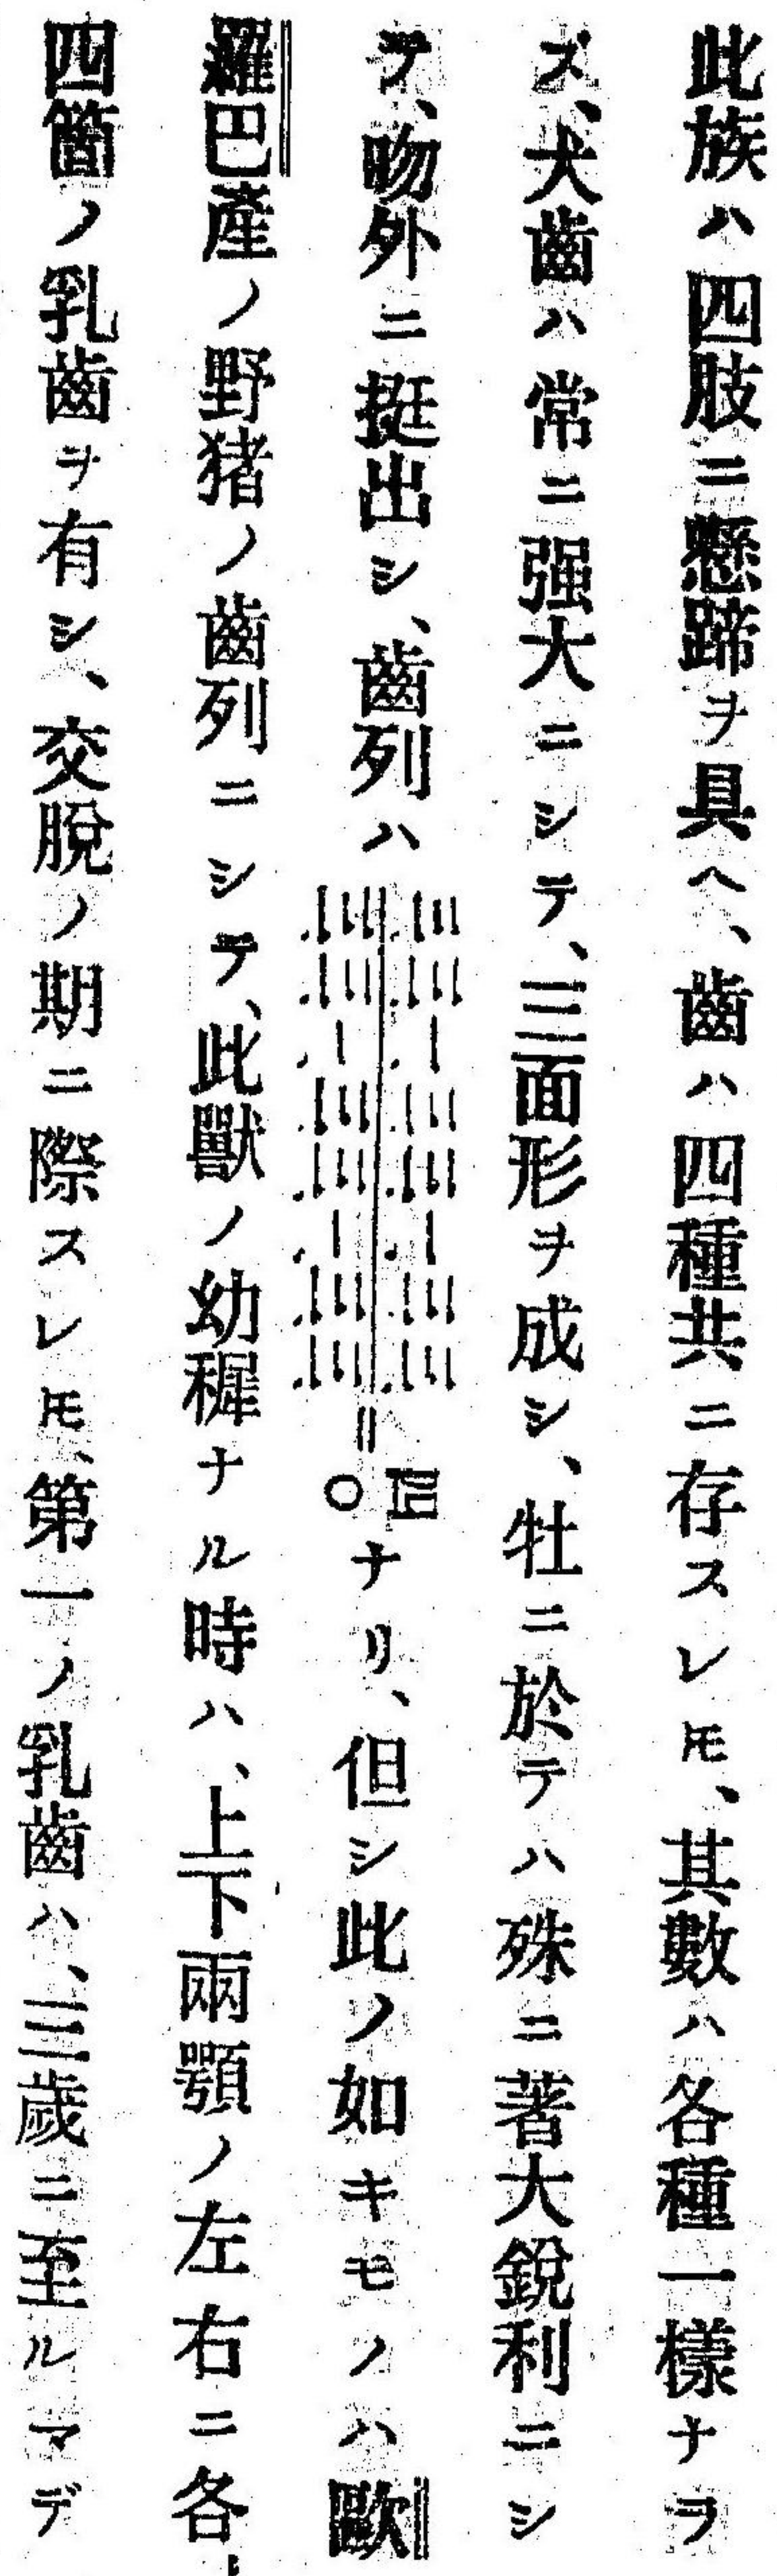 此族ハ四肢ニ懸蹄ヲ具ヘ、齒ハ四種共ニ存スレ𪜈、其數ハ各種一樣ナラ
ズ、犬齒ハ常ニ强大ニシテ、三面形ヲ成シ、牡ニ於テハ殊ニ著大銳利ニシ
テ、吻外ニ挺出シ、齒列ハ三.三.一.三.三.一.三.三/三.三.一.三.三.一.三.三=四〇ナリ、但シ此ノ如キモノハ歐
羅巴產ノ野猪ノ齒列ニシテ、此獸ノ幼穉ナル時ハ、上下兩顎ノ左右ニ各、
四箇ノ乳齒ヲ有シ、交脫ノ期ニ際スレ𪜈、第一ノ乳齒ハ、三歲ニ至ルマデ